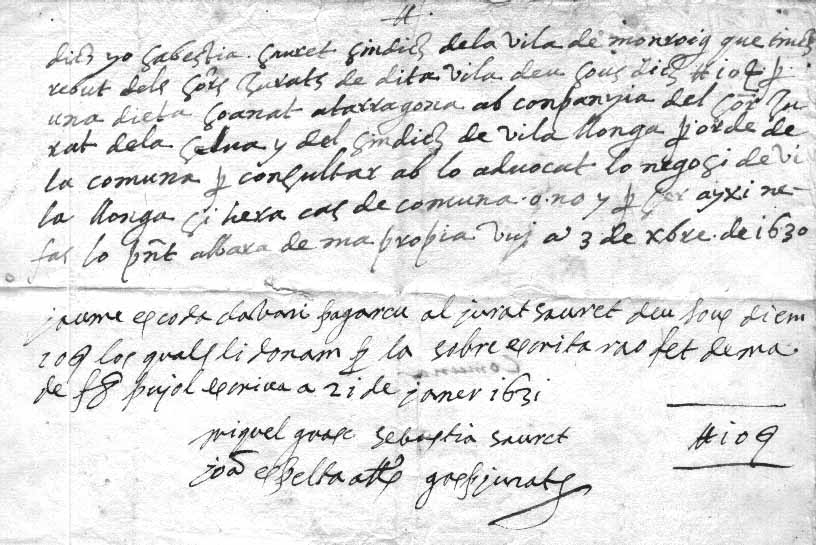 dich yo Sabestia Sauret Sindich dela vila de monroig que tinch
rebut dels Sors Jurats de dita vila deu Sous dich ₶ 10 ꝑ
una dieta Soanat atarragona ab conpanyia del Sor Ju
rat dela Selva y del Sindich de vila llonga ꝑ orde de
la comuna ꝑ consultar ab lo advocat lo negosi de vi
la llonga Si hera cas de comuna o no y ꝑ Ser ayxi ne
fas lo pñt albara de ma propia vuy a 3 de xbre de 1630
jaume escoda clavari pagareu al jurat sauret deu sous diem
10 los quals li donam ꝑ la sobre escrita rao fet de ma
de pujol escriva a 21 de janer 1631
miquel guasc sebastia sauret
joã espelta jurats
₶ 10